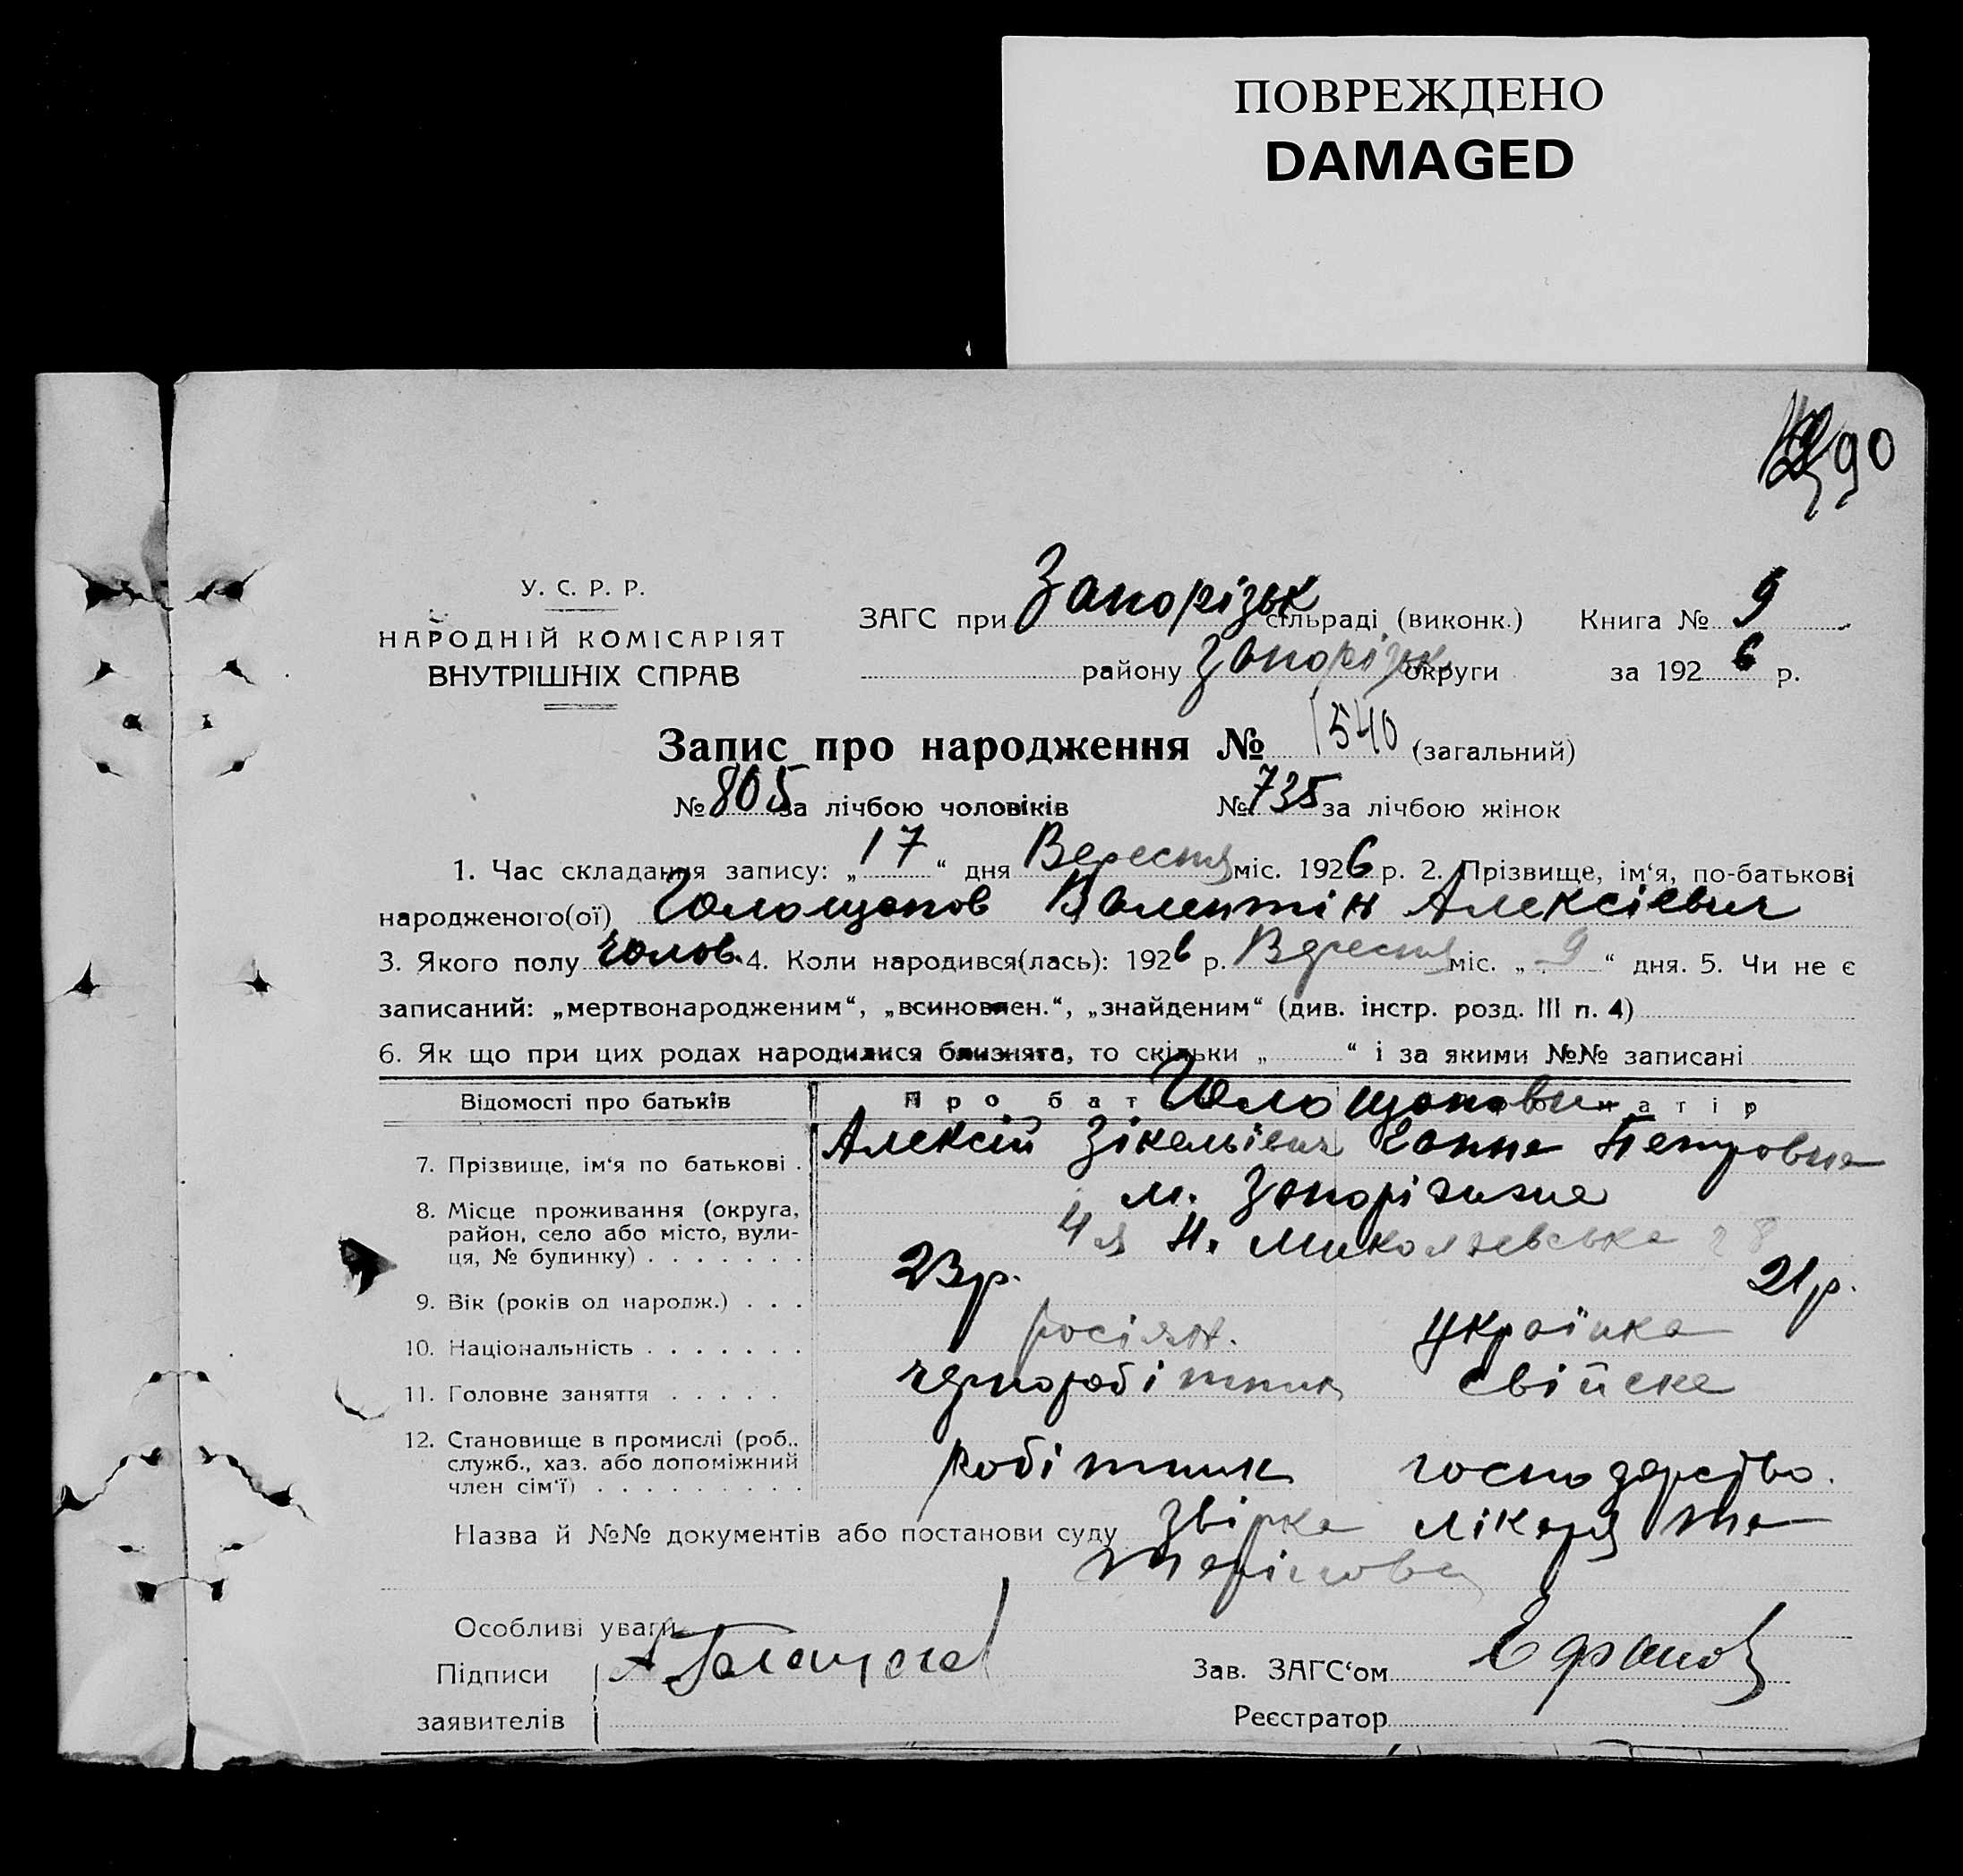 ПОВРЕЖДЕНО
DAMAGED
90
У. С. Р. Р.
НАРОДНІЙ КОМІСАРІЯТ
ВНУТРІШНІХ СПРАВ
ЗАГС при Запорізьк сільраді (виконк.) Книга № 9
району Запорізьк округи за 192 6 р.
Запис про народження № 1540 (загальний)
№ 805 за лічбою чоловіків № 735 за лічбою жінок
1. Час складання запису: „ 17 “ дня Вересня міс. 1926 р. 2. Прізвище, ім‘я, по-батькові
народженого(ої) Голощапов Валентін Алексієвич
3. Якого полу чолов. 4. Коли народився(лась): 1926 р. Вересня міс. „ 9 “ дня. 5. Чи не є
записаний: „мертвонародженим“, „всиновлен.“, „знайденим“ (див. інстр. розд. III п. 4)
6. Як що при цих родах народилися близнята, то скільки „ “ і за якими №№ записані
Відомості про батьків Про бат Голощапови матір
7. Прізвище, ім‘я по батькові . Алексій Ганна Петровна
8. Місце проживання (округа, м. Запоріжжя
район, село або місто, вули- 4я Н. Миколаевська 28
ця, № будинку) . . . . . . .
9. Вік (років од народж.) . . . 23р. 21р.
10. Національність . . . . . . . росіян. Українка
11. Головне заняття . . . . . чорноробітник свійске
12. Становище в промислі (роб.,
служб., хаз. або допоміжний робітник господарство.
член сім‘ї) . . . . . . . . .
Назва й №№ документів або постанови суду лікаря та
Особливі уваги
Підписи Зав. ЗАГС‘ом
заявителів Реєстратор